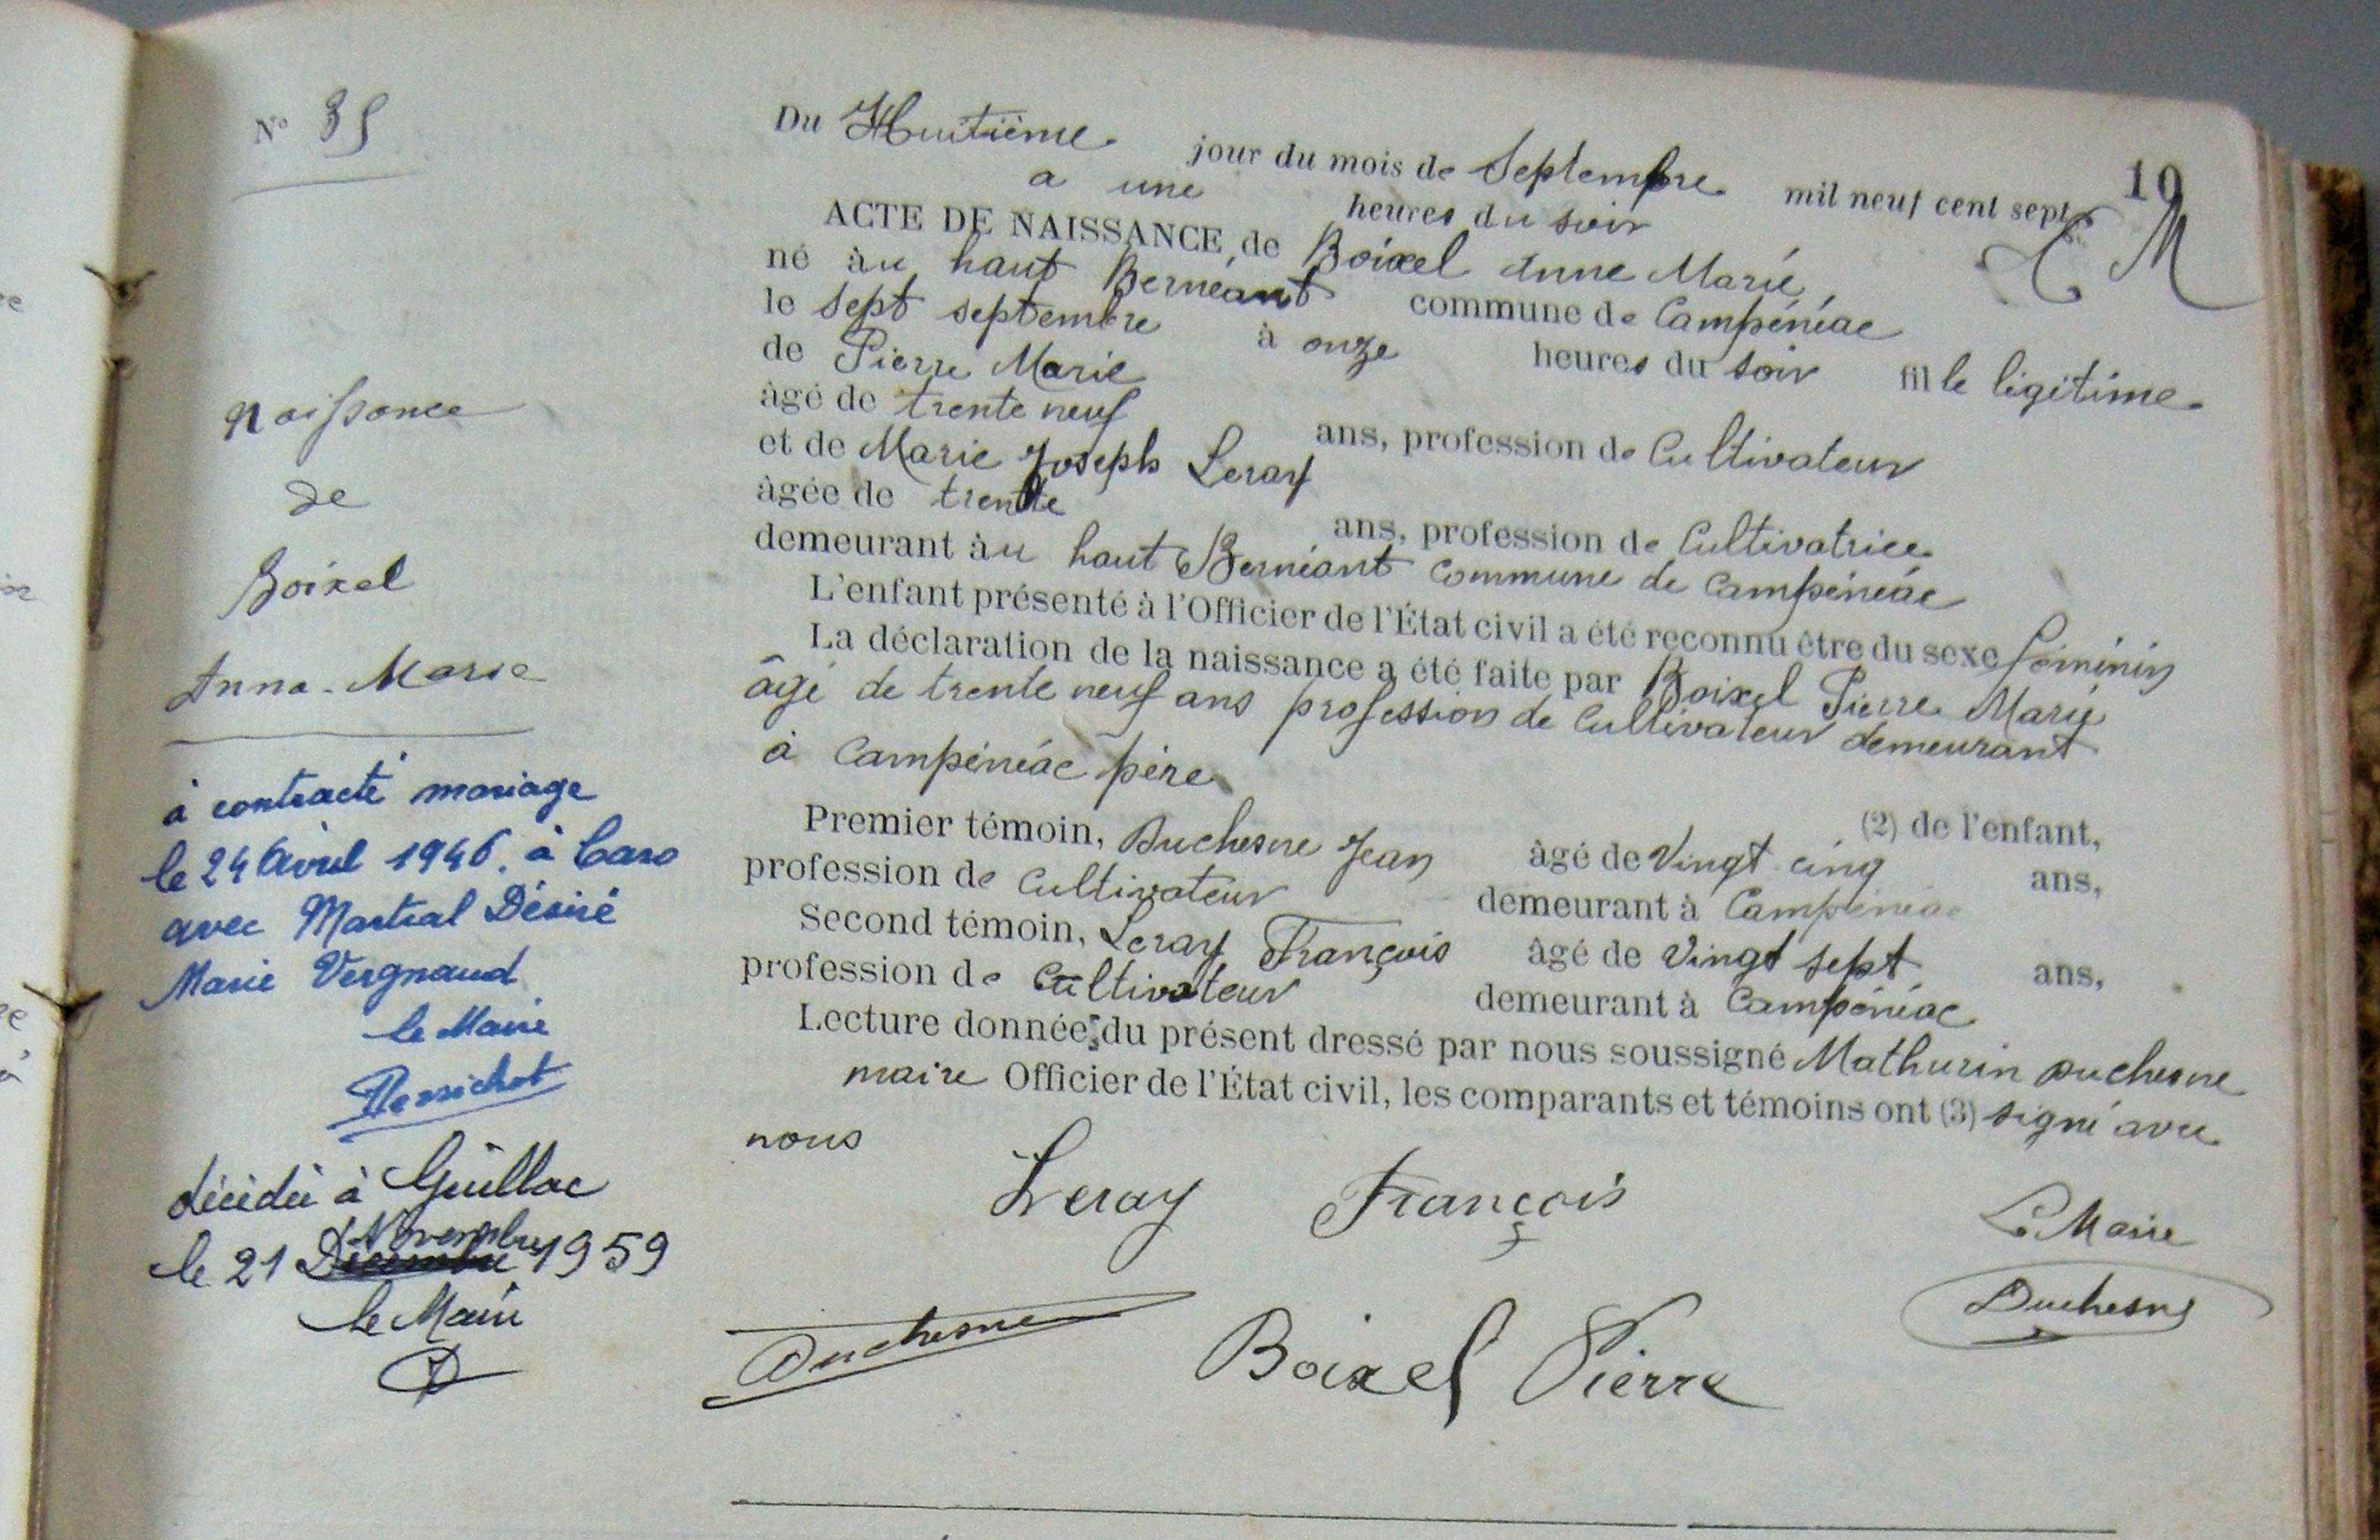 10
N° 35
Du Huitième jour du mois de Septembre mil neuf cent sept
a une heures du soir
ACTE DE NAISSANCE de Boixel Anne Marie
né àu haut Bernéant commune de Campénéac
le sept septembre à onze heures du soir fille légitime
de Pierre Marie
âgé de trente neuf ans, profession de Cultivateur
et de Marie Joseph Leray
âgée de trente ans, profession de Cultivatrice
demeurant àu haut Bernéant commune de Campénéac
L'enfant présenté à l'Officier de l'État civil a été reconnu être du sexe féminin
La déclaration de la naissance a été faite par Boixel Pierre Marie
âgé de trente neuf ans profession de Cultivateur demeurant
à Campénéac père
(2) de l'enfant,
Premier témoin, Duchesne Jean âgé de Vingt cinq ans,
profession de Cultivateur demeurant à Campénéac
Second témoin, Leray François âgé de Vingt sept ans,
profession de Cultivateur demeurant à Campénéac
Lecture donnée du présent dressé par nous soussigné Mathurin Duchesne
maire Officier de l'État civil, les comparants et témoins ont (3) signé avec
nous
Leray François
Le Maire
Duchesne
Duchesne
Boixel Pierre
Naissance
de
Boixel
Anna-Marie
à contracté mariage
le 24 Avril 1946. à Caro
avec Martial Désiré
Marie Vergnaud
le Maire
décédée à Guillac
Novembre
le 21 Décembre 1959
le Maire